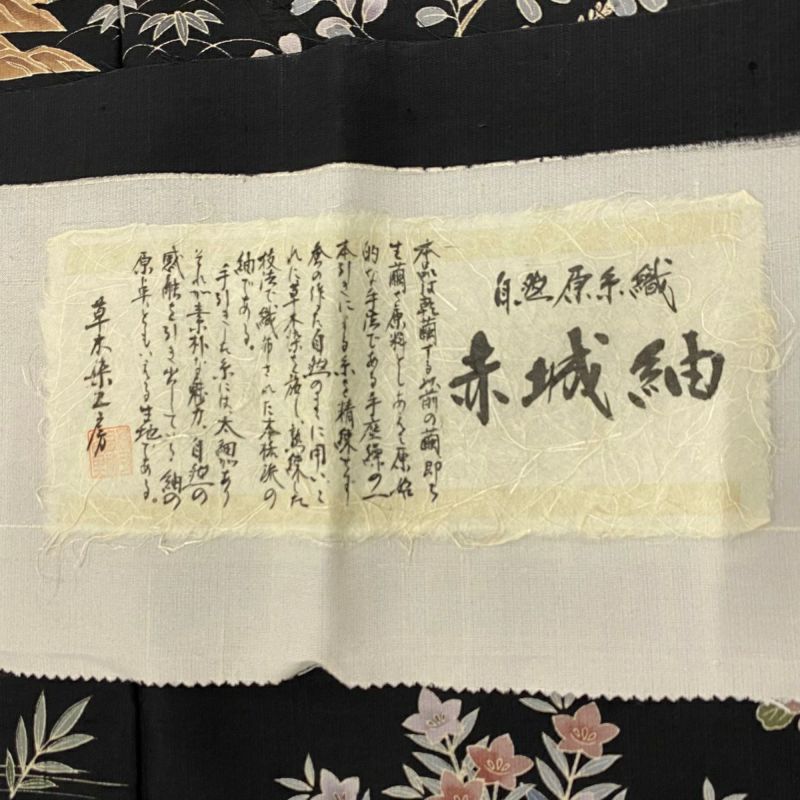 自然原糸織
赤城紬
本品は乾繭する以前の繭即ち
生繭を原料とし最も原始
的な手法である手座繰の一
本引きによる糸を精練せず
蚕の作った自然のままに用いこ
れに草木染を施し熟練した
技法で織布された本格派の
紬である。
手引きした糸には太細があり
それが素朴な魅力、自然の
感触を引き出している紬の
原点ともいえる生地である。
草木染工房